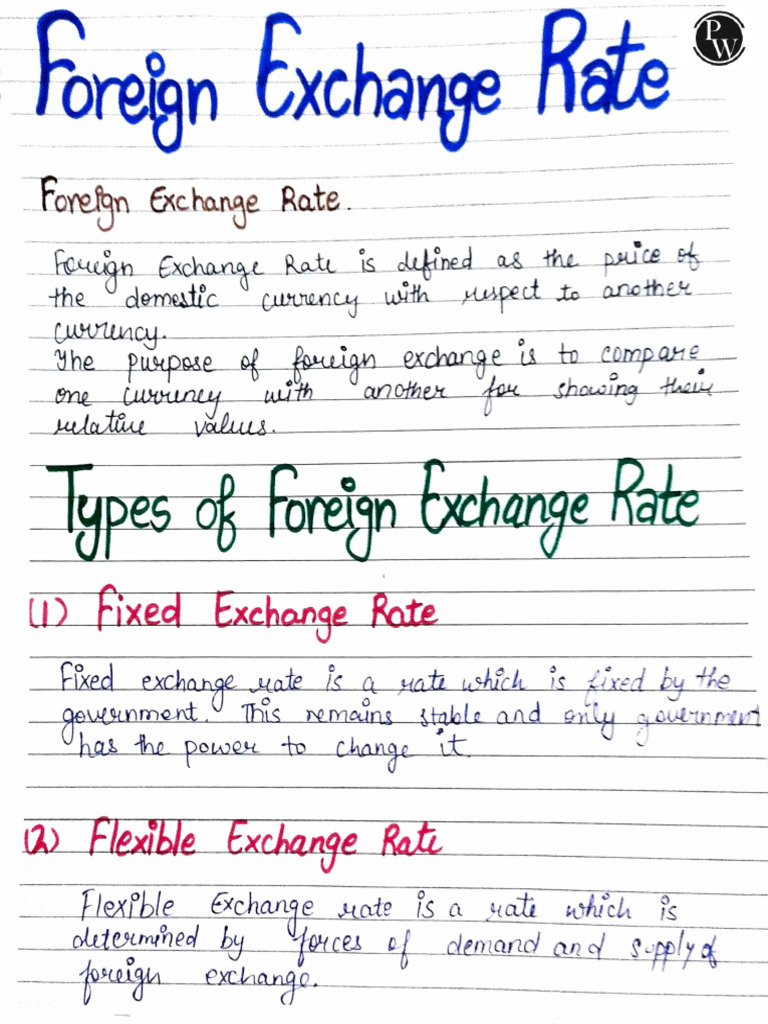 Foreign Exchange Rate
PW
Foreign Exchange Rate.
Foreign Exchange Rate is defined as the price of
the domestic currency with respect to another
currency.
The purpose of foreign exchange is to compare
one currency with another for showing their
relative values.
Types of Foreign Exchange Rate
(1) Fixed Exchange Rate
Fixed exchange rate is a rate which is fixed by the
government. This remains stable and only government
has the power to change it.
(2) Flexible Exchange Rate
Flexible Exchange rate is a rate which is
determined by forces of demand and supply of
foreign exchange.